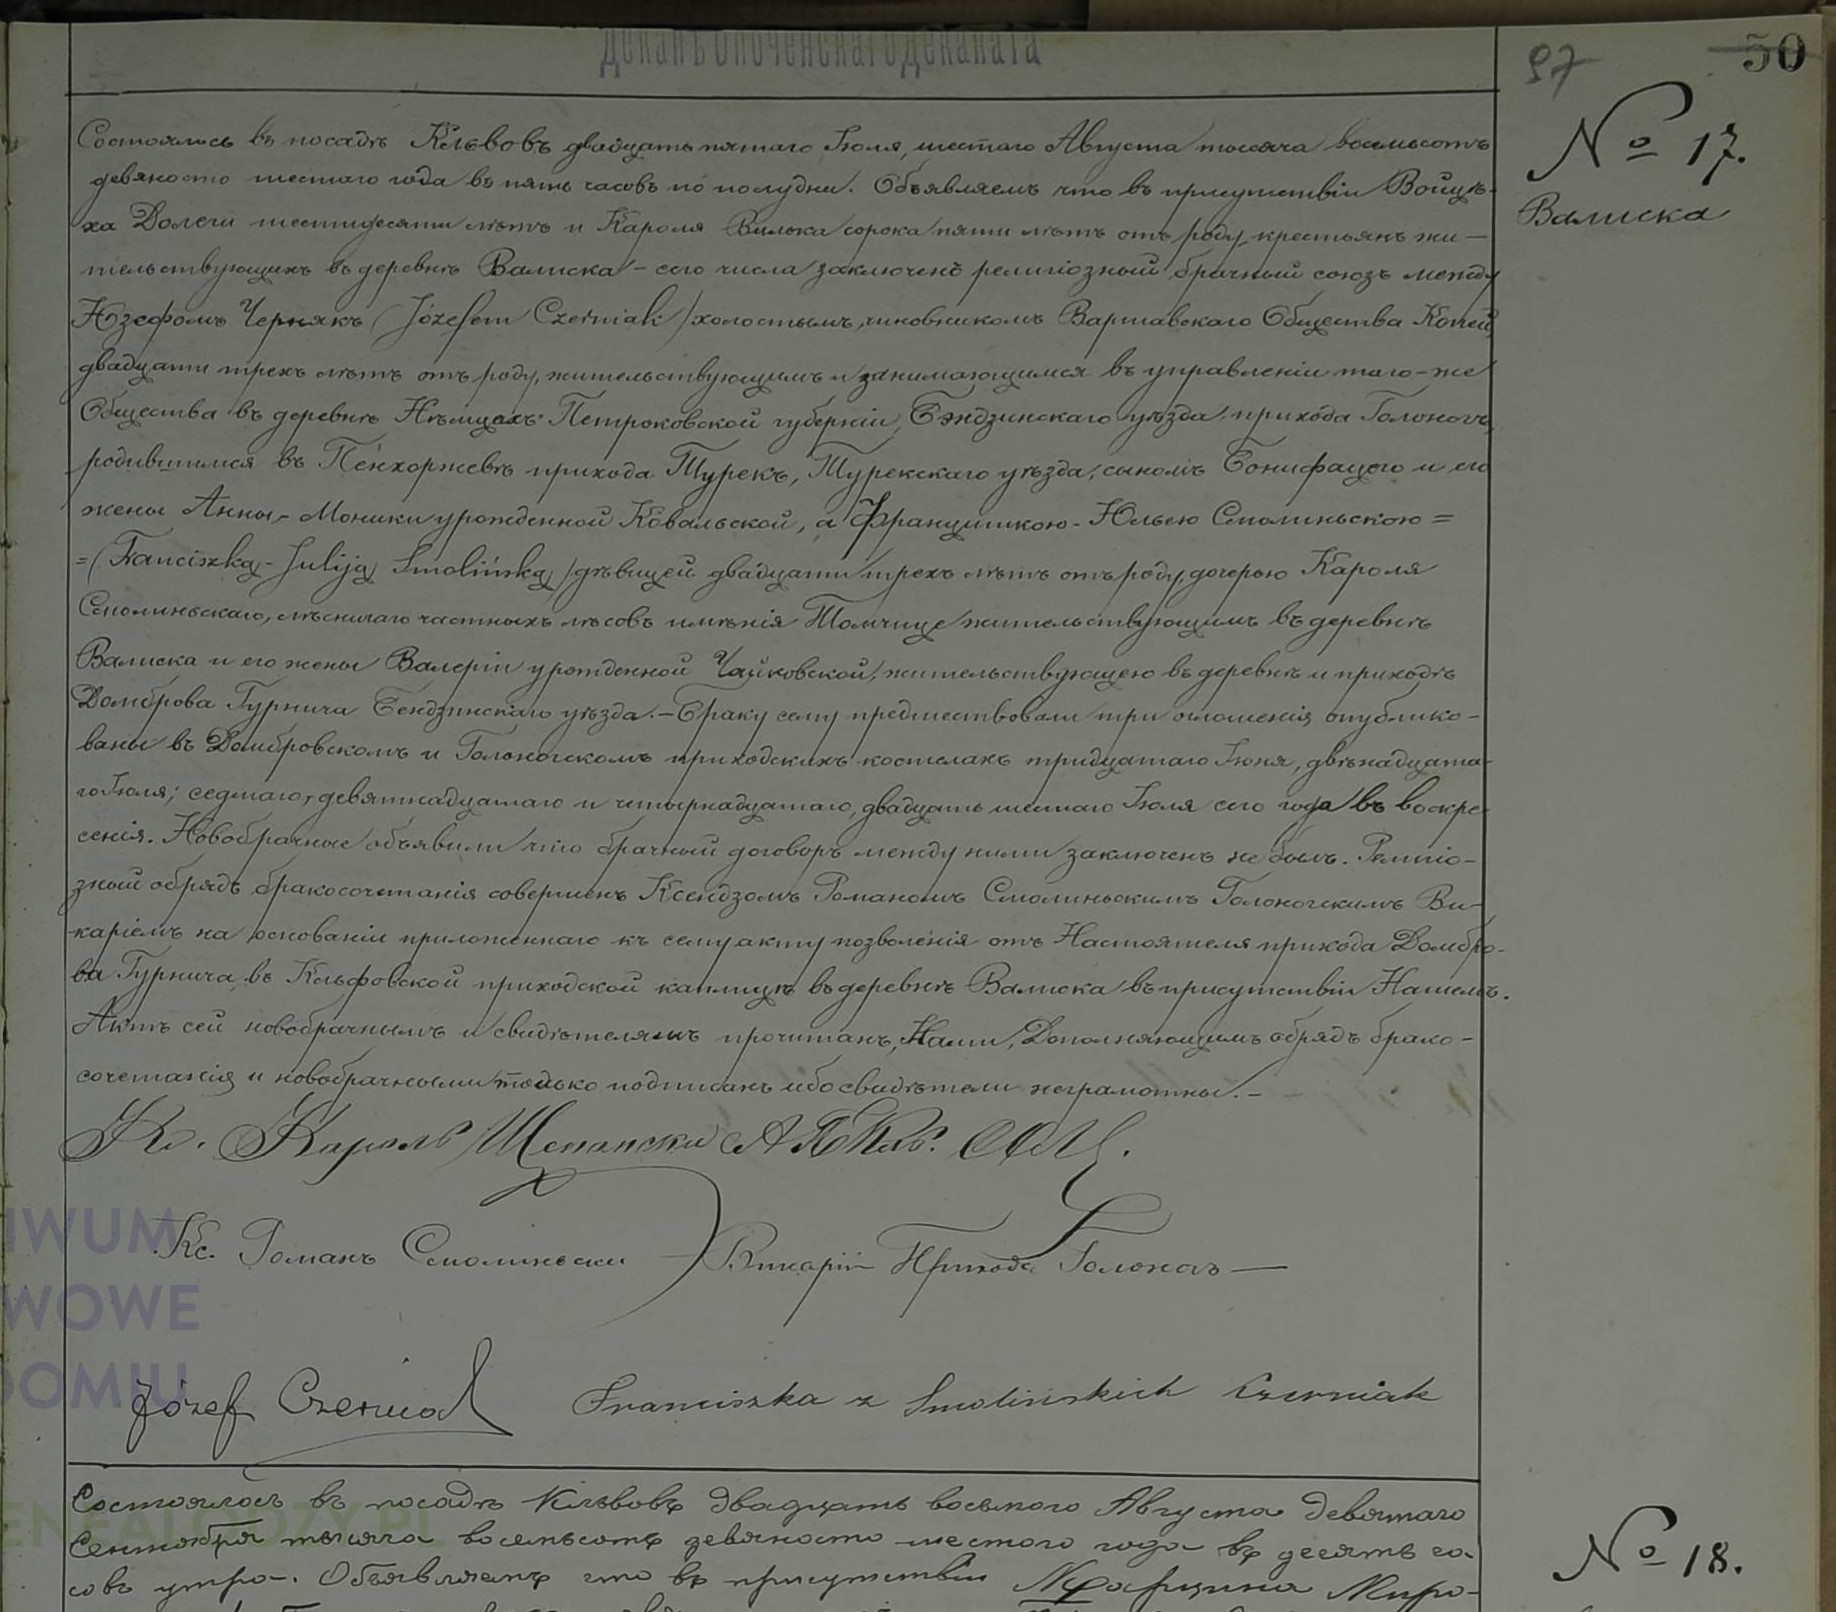 Деканъ Опоченскаго Деканата
97
50
№ 17.
Валиска
Состоялось въ посадѣ Кльвовъ двадцать пятаго Іюля, шестаго Августа тысяча восемьсотъ
девяносто шестаго года въ пять часовъ по полудни. Объявляемъ что въ присутствіи Войцѣ-
ха Долеги шестидесяти лѣтъ и Кароля Вилька сорока пяти лѣтъ отъ роду, крестьянъ жи-
тельствующихъ въ деревнѣ Валиска - сего числа заключенъ религіозный брачный союзъ между
Юзефомъ Чернякъ (Józefem Czerniak) холостымъ, чиновникомъ Варшавскаго Общества Копей,
двадцати трехъ лѣтъ отъ роду, жительствующимъ и занимающимся въ управленіи того-же
Общества въ деревнѣ Нѣмцахъ Петроковской губерніи, Бэндзинскаго уѣзда, прихода Голоногъ,
родившимся въ Пенхоржевѣ прихода Турекъ, Турекскаго уѣзда, сыномъ Бонифацого и его
жены Анны-Моники урожденной Ковальской, а Францишкою-Юльею Смолиньскою =
=(Franciszką-Juliją Smolińską) дѣвицей двадцати трехъ лѣтъ отъ роду, дочерью Кароля
Смолиньскаго, лѣсничаго частныхъ лѣсовъ имѣнія Томчице жительствующимъ въ деревнѣ
Валиска и его жены Валеріи урожденной Чайковской, жительствующею въ деревнѣ и приходѣ
Домброва Гурнича Бендзинскаго уѣзда. - Браку сему предшествовали три оглошенія опублико-
ваны въ Домбровскомъ и Голоногскомъ приходскихъ костелахъ тридцатаго Іюня, двѣнадцата-
го Іюля; седмаго, девятнадцатаго и четырнадцатаго, двадцать шестаго Іюля сего года въ воскре-
сенія. Новобрачные объявили что брачный договоръ между ними заключенъ не былъ. Религіо-
зный обрядъ бракосочетанія совершенъ Ксендзомъ Романомъ Смолиньскимъ Голоногскимъ Ви-
каріемъ на основаніи приложеннаго къ сему акту позволенія отъ Настоятеля прихода Домбро-
ва Гурнича, въ Кльфовской приходской каплицѣ въ деревнѣ Валиска въ присутствіи Нашемъ.
Актъ сей новобрачнымъ и свидѣтелямъ прочитанъ, Нами, Дополняющимъ обрядъ брако-
сочетанія и новобрачными только подписанъ ибо свидѣтели неграмотны. -
Кс. Кароль Щепански
Кс. Романъ Смолиньски Викарій Прихода Голоногъ —
Józef Czerniak Franciszka z Smolińskich Czerniak
IWUM
WOWE
DOMIU
ENEALODZY.PL
№ 18.
Состоялось въ посадѣ Кльвовѣ двадцать восьмого Августа девятаго
Сентября тысяча восемьсотъ девяносто шестого года въ десять ча-
совъ утра. Объявляемъ что въ присутствіи Марцина Миро-